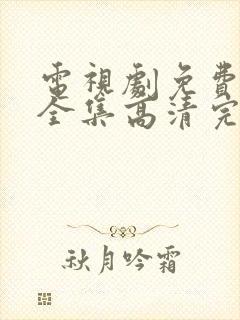 電視劇免費
全集高清完
秋月吟霜